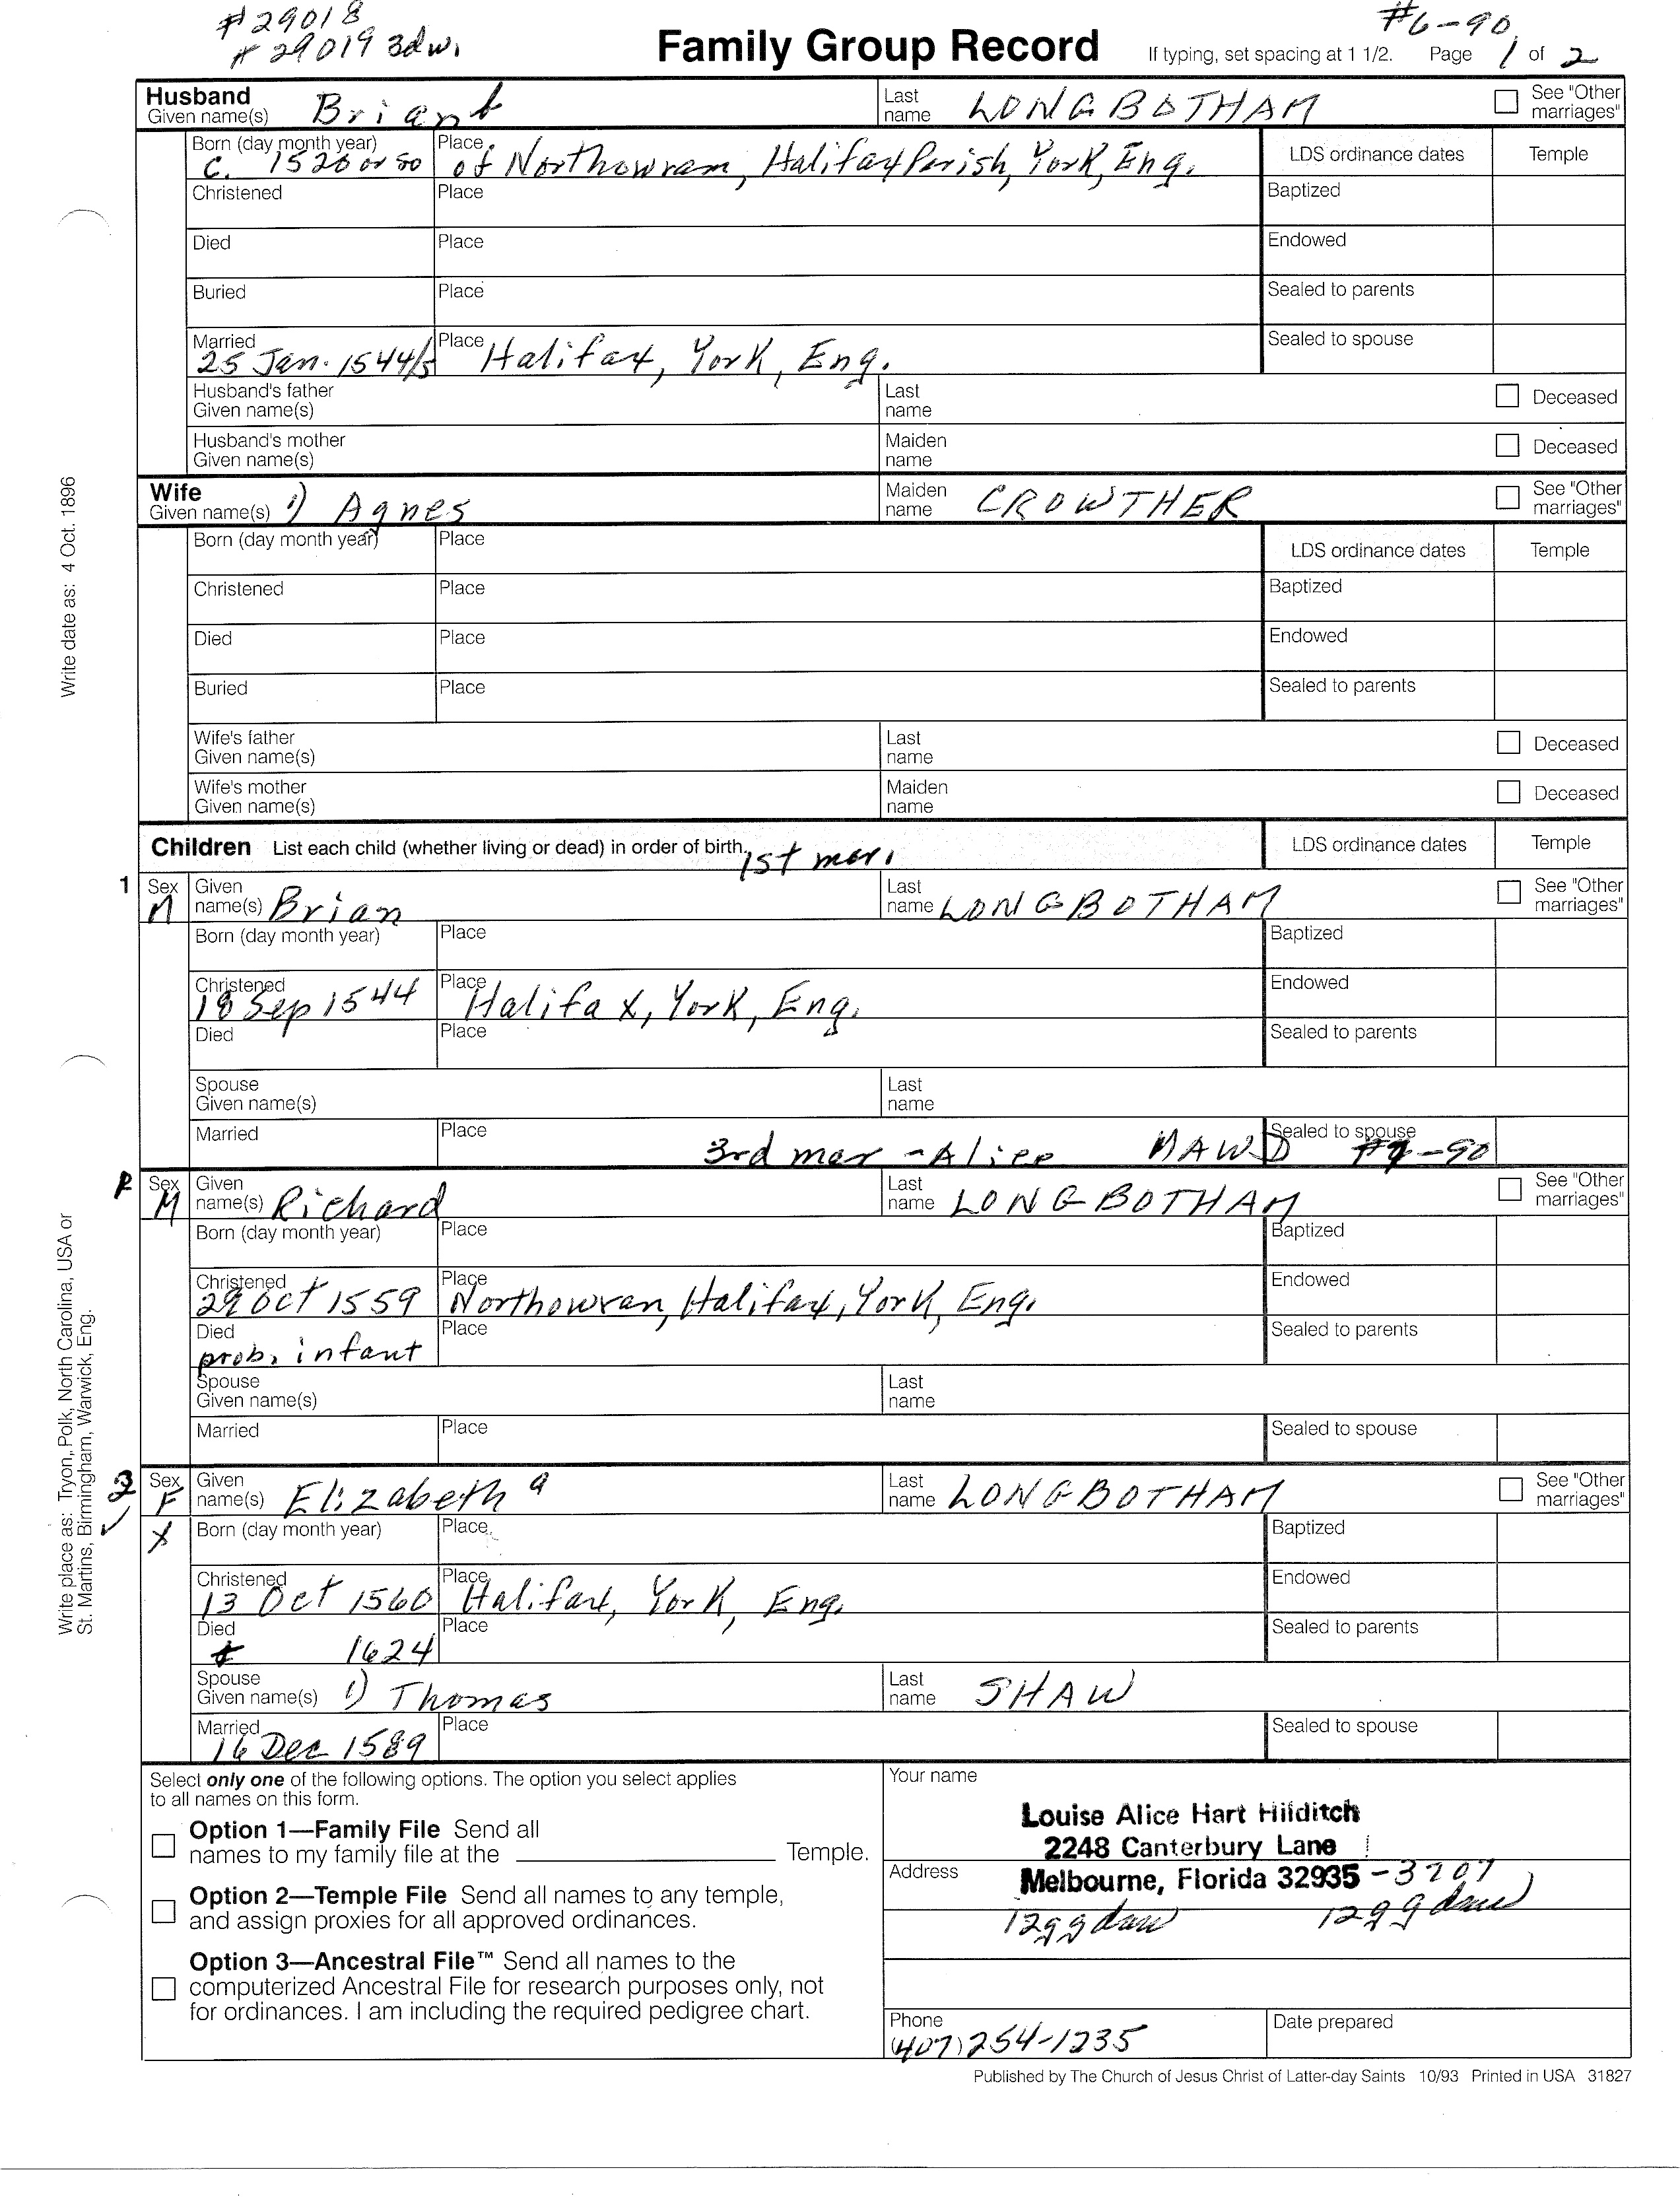 #29018
#29019 3dw.
Family Group Record
If typing, set spacing at 1 1/2. Page 1 of 2
#6-90
Husband
Given name(s) Briant
Last name LONGBOTHAM
See "Other marriages"
Born (day month year) c. 1520 or 30
Place of Northowram, Halifax Parish, York, Eng.
LDS ordinance dates
Temple
Christened
Place
Baptized
Died
Place
Endowed
Buried
Place
Sealed to parents
Married 25 Jan. 1544/5
Place Halifax, York, Eng.
Sealed to spouse
Husband's father
Given name(s)
Last name
Deceased
Husband's mother
Given name(s)
Maiden name
Deceased
Wife
Given name(s) 1) Agnes
Maiden name CROWTHER
See "Other marriages"
Born (day month year)
Place
LDS ordinance dates
Temple
Christened
Place
Baptized
Died
Place
Endowed
Buried
Place
Sealed to parents
Wife's father
Given name(s)
Last name
Deceased
Wife's mother
Given name(s)
Maiden name
Deceased
Children List each child (whether living or dead) in order of birth. 1st mar.
LDS ordinance dates
Temple
1
Sex M
Given name(s) Brian
Last name LONGBOTHAM
See "Other marriages"
Born (day month year)
Place
Baptized
Christened 18 Sep 1544
Place Halifax, York, Eng.
Endowed
Died
Place
Sealed to parents
Spouse
Given name(s)
Last name
Married
Place
3rd mar - Alice MAWD
Sealed to spouse
-90
2
Sex M
Given name(s) Richard
Last name LONGBOTHAM
See "Other marriages"
Born (day month year)
Place
Baptized
Christened 29 Oct 1559
Place Northowran, Halifax, York, Eng.
Endowed
Died prob. infant
Place
Sealed to parents
Spouse
Given name(s)
Last name
Married
Place
Sealed to spouse
3
Sex F
X
Given name(s) Elizabeth
Last name LONGBOTHAM
See "Other marriages"
Born (day month year)
Place
Baptized
Christened 13 Oct 1560
Place Halifax, York, Eng.
Endowed
Died 1624
Place
Sealed to parents
Spouse
Given name(s) 1) Thomas
Last name SHAW
Married 16 Dec 1589
Place
Sealed to spouse
Select only one of the following options. The option you select applies
to all names on this form.
Option 1—Family File Send all
names to my family file at the Temple.
Option 2—Temple File Send all names to any temple,
and assign proxies for all approved ordinances.
Option 3—Ancestral File™ Send all names to the
computerized Ancestral File for research purposes only, not
for ordinances. I am including the required pedigree chart.
Your name
Louise Alice Hart Hilditch
2248 Canterbury Lane
Address
Melbourne, Florida 32935 -3207
12ggdau 12ggdau
Phone
(407) 254-1235
Date prepared
Published by The Church of Jesus Christ of Latter-day Saints 10/93 Printed in USA 31827
Write date as: 4 Oct. 1896
Write place as: Tryon, Polk, North Carolina, USA or
St. Martins, Birmingham, Warwick, Eng.